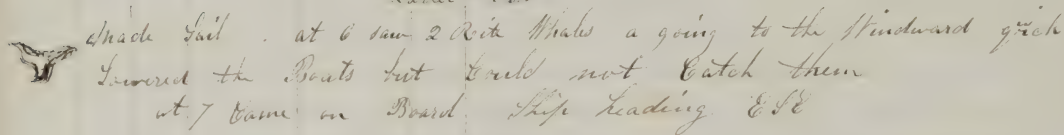 made Sail . at 6 saw 2 Rite Whales a going to the Windward quick
Lowered the Boats but Could not Catch them
at 7 Came on Board. Ship heading ESE